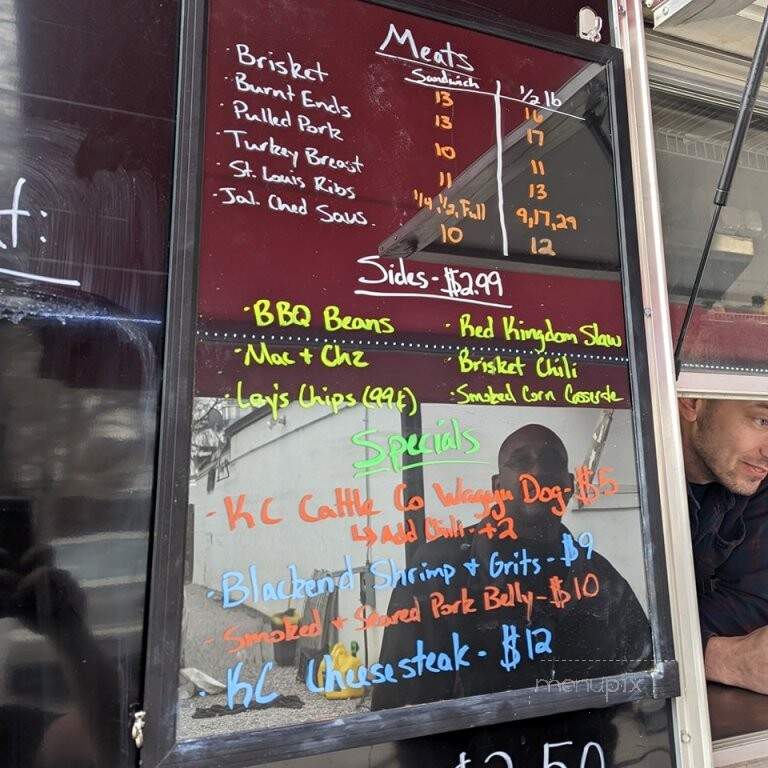 Meats
Sandwich 1/2 lb
· Brisket 13 16
· Burnt Ends 13 17
· Pulled Pork 10 11
· Turkey Breast 11 13
· St. Louis Ribs 1/4, 1/2, Full 9,17,29
· Jal. Ched Saus. 10 12
Sides - $2.99
· BBQ Beans · Red Kingdom Slaw
· Mac + Chz · Brisket Chili
· Lay's Chips (99¢) · Smoked Corn Casserole
Specials
· KC Cattle Co Wagyu Dog - $5
↳ Add Chili - +2
· Blackend Shrimp + Grits - $9
· Smoked + Seared Pork Belly - $10
· KC Cheesesteak - $12
menupix